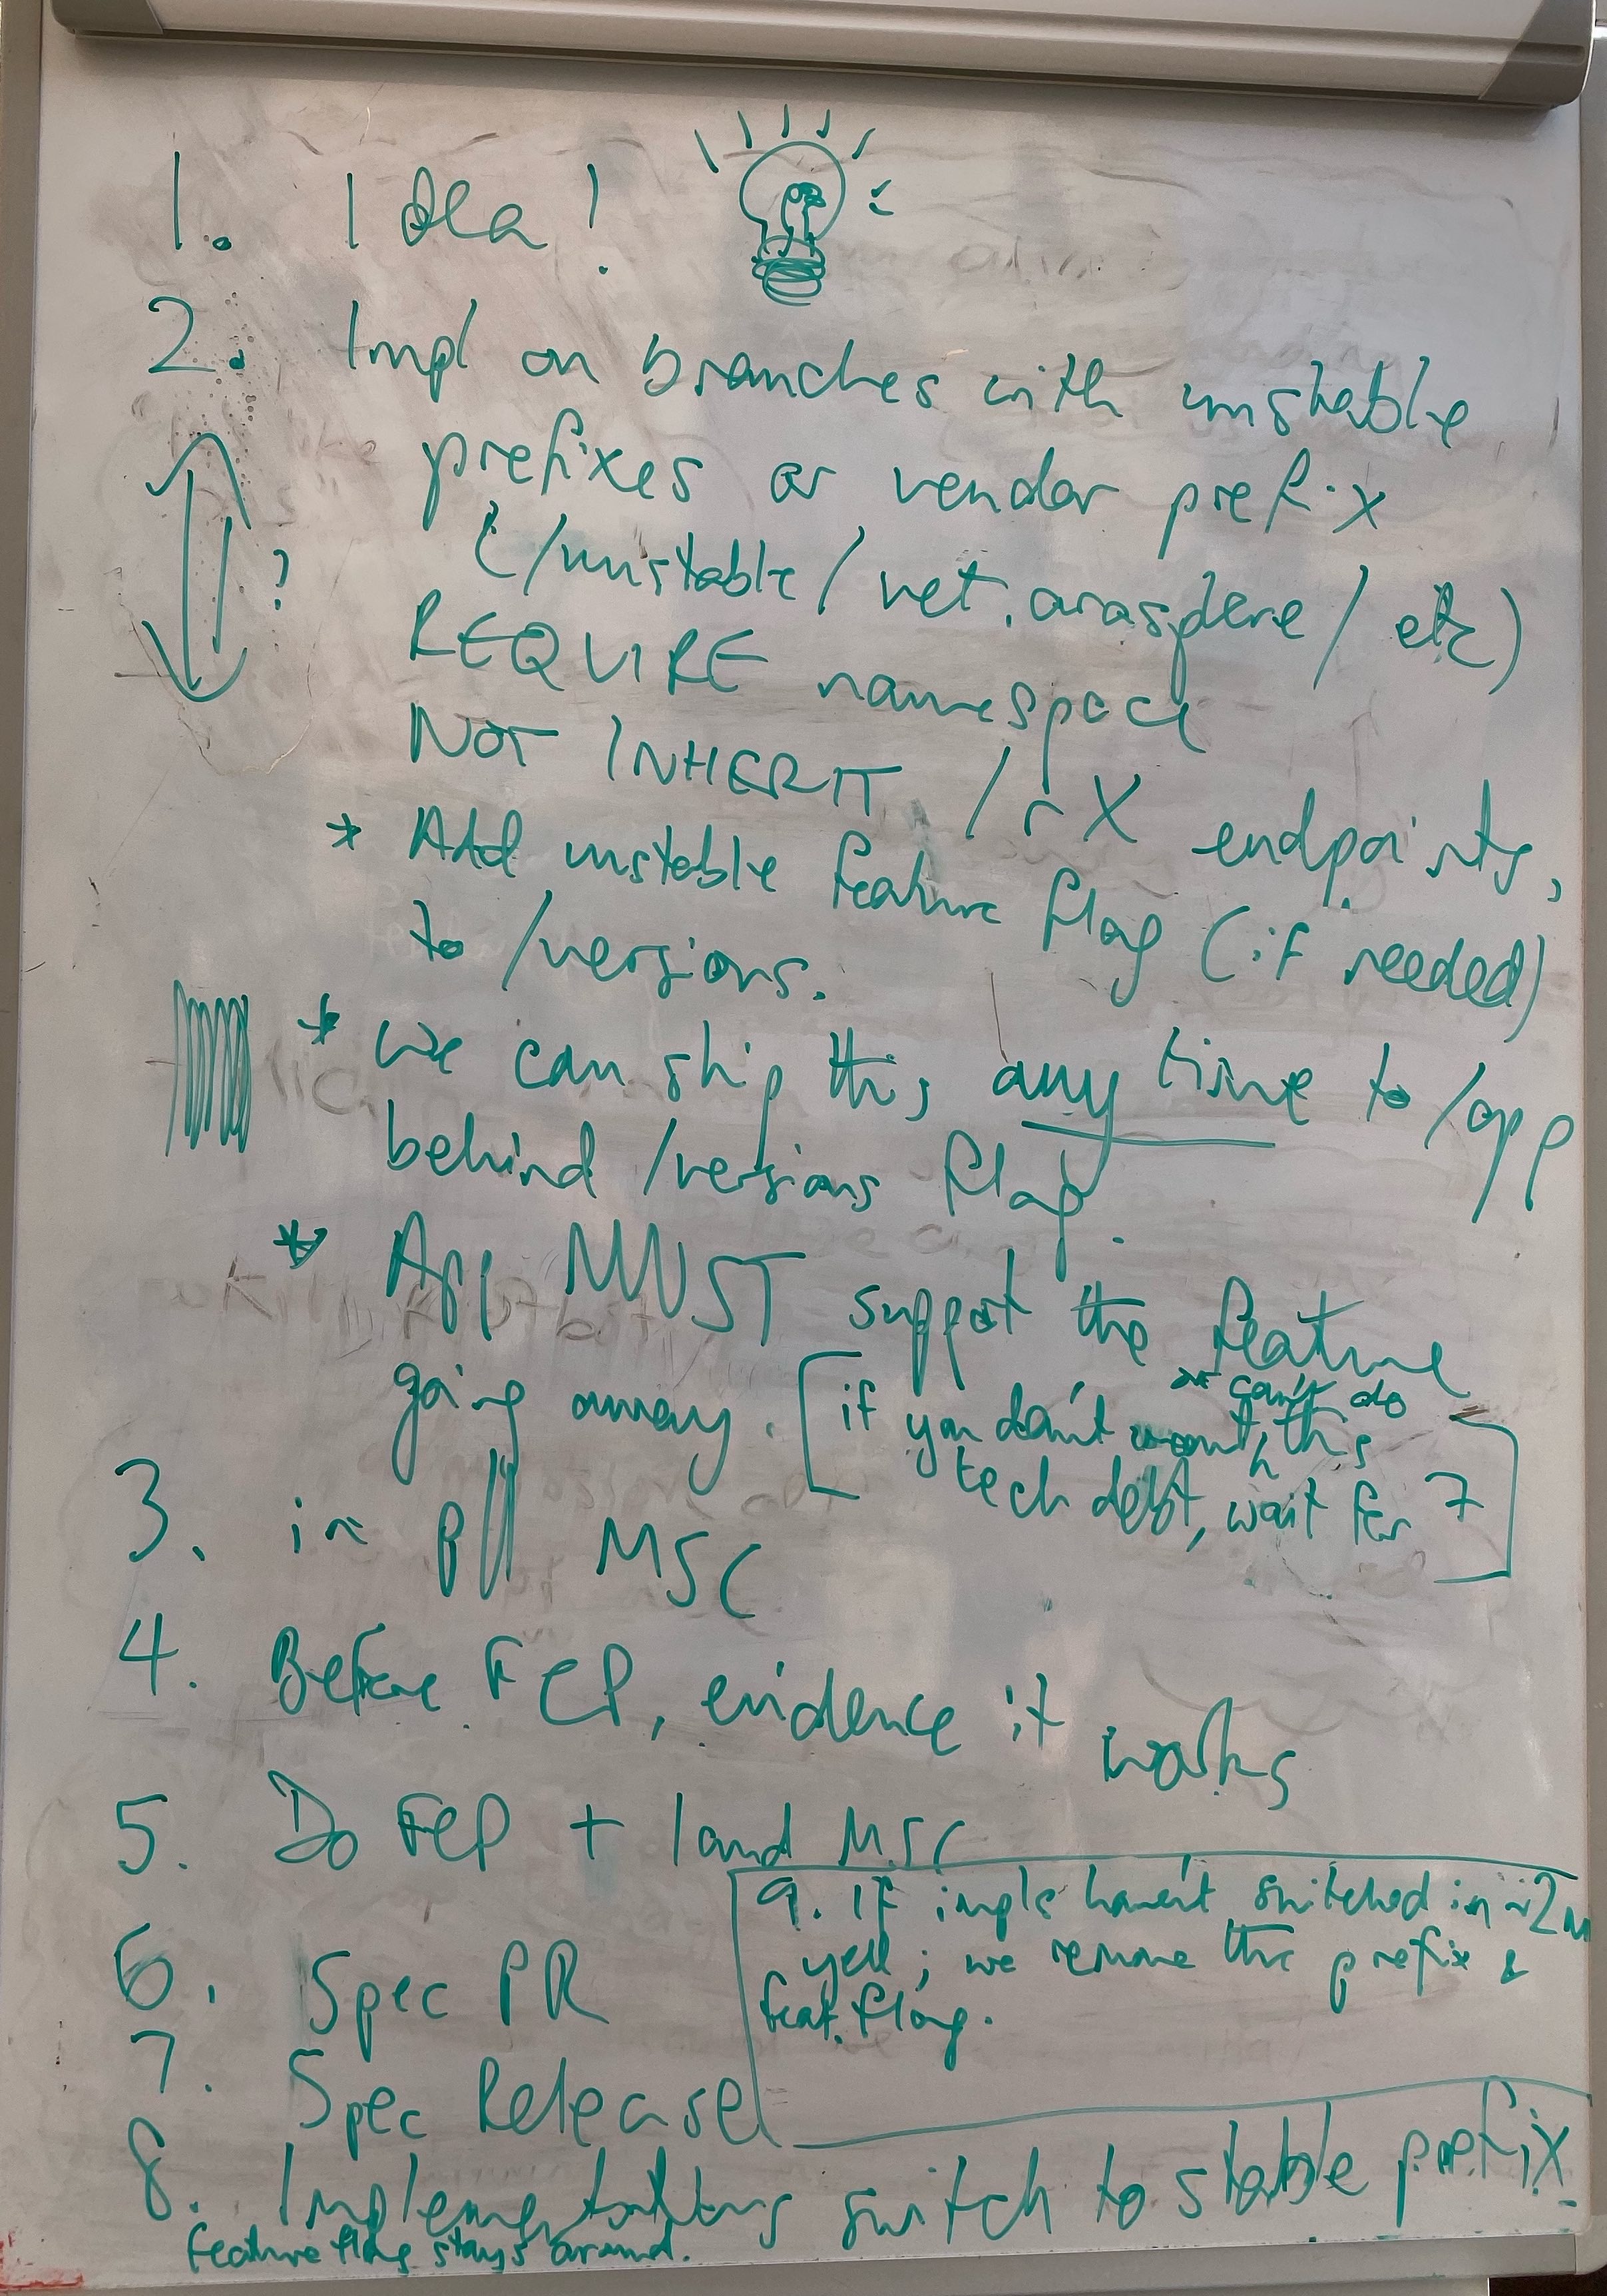 1. Idea!
2. Impl on branches with unstable
prefixes or vendor prefix
(/unstable/net.arasphere/etc)
?
REQUIRE namespace
NOT INHERIT /rX endpoints,
* Add unstable feature flag (if needed)
to /versions.
* we can ship this any time to /app
behind /versions flag.
* App MUST support the feature
going away. [if you don't want this
or can't do
tech debt, wait for 7]
3. in p// MSC
4. Before FCP, evidence it works
5. Do FCP + land MSC
6. Spec PR
7. Spec Release
8. Implementations switch to stable prefix
feature flag stays around.
9. If impls haven't switched in ~2m
yell; we remove the prefix &
feat. flag.